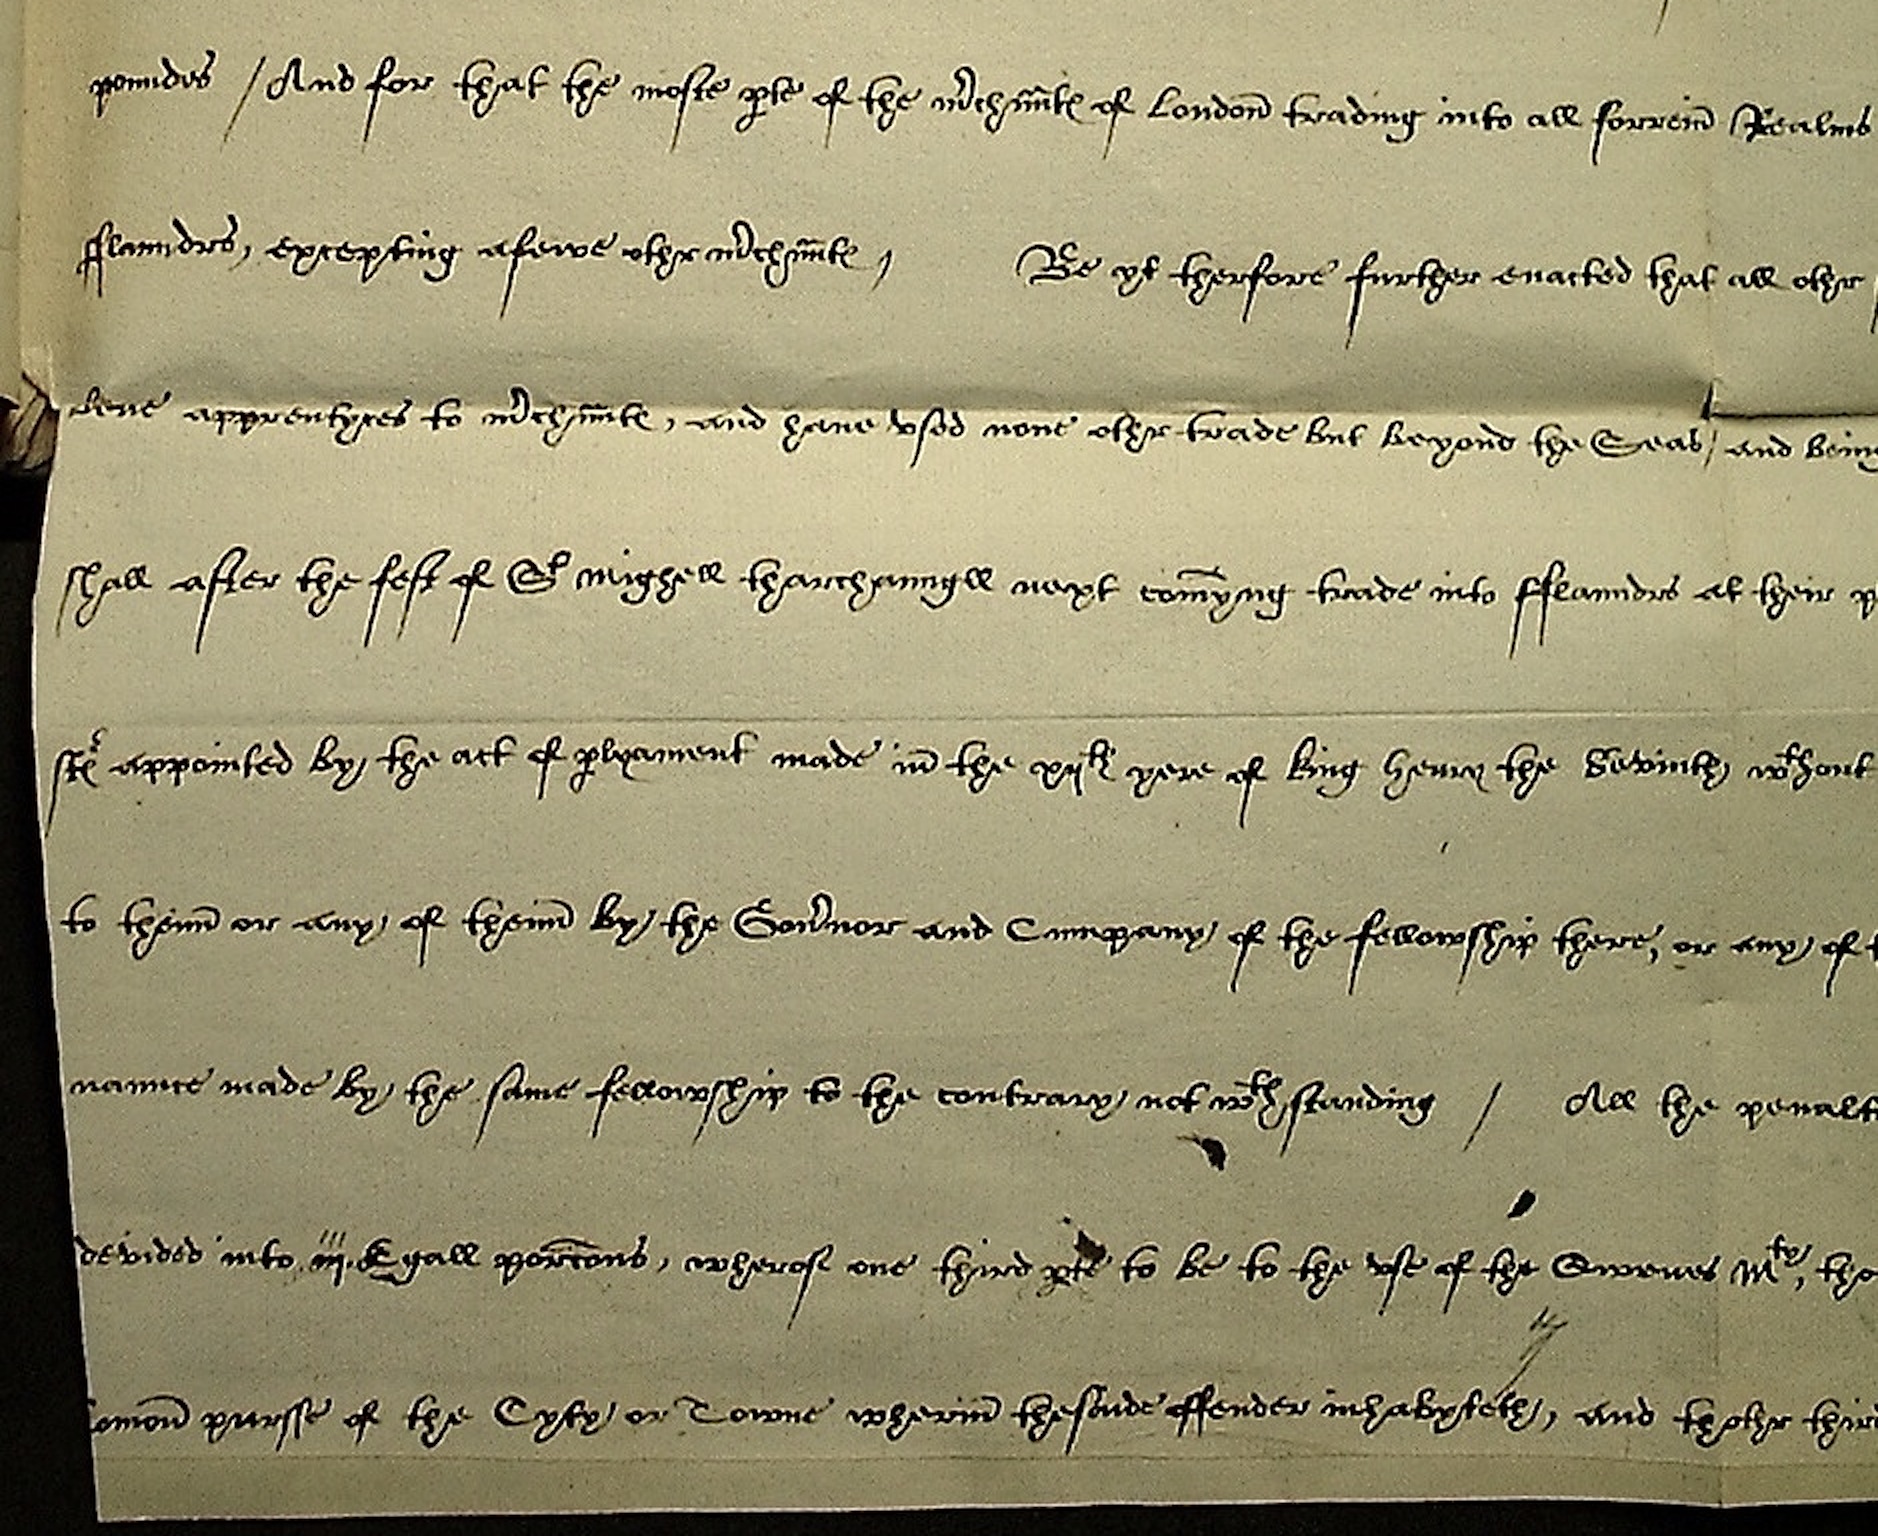 poundes / And for that the moste pte of the mchaunts of London trading into all forrein Realms
fflaundrs, excepting a fewe othr mchaunts / Be yt therfore further enacted that all othr
bene apprentyces to mchaunts, and haue vsed none othr trade but beyond the Seas / and being
shall after the fest of St Mighell tharchaungll next comyng trade into fflaundrs at their
appointed by the act of plyament made in the xijth yere of king Henry the Sevinth, wthout
to theim or any of theim by the Gou'nor and Cumpany of the fellowship there, or any of
naunce made by the same fellowship to the contrary not wthstanding / All the penalt
devided into .iij. Egall porcons, wherof one third pte to be to the vse of the Quenes Mty, tho
comon pursse of the Cyty or Towne wherin thesaide offender inhabyteth, and thothr third